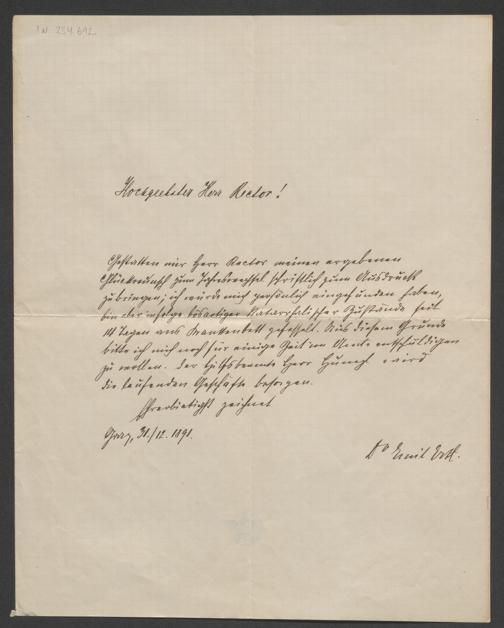 IN 254.692
Hochgeehrter Herr Rector!
Gestatten mir Herr Rector meinen ergebenen
Glückwunsch zum Jahreswechsel schriftlich zum Ausdruck
zu bringen; ich würde mich persönlich eingefunden haben,
bin aber infolge bösartiger katarrhalischer Zustände seit
14 Tagen ans Krankenbett gefesselt. Aus diesem Grunde
bitte ich mich noch für einige Zeit im Amte entschuldigen
zu wollen. Der Hilfsbeamte Herr wird
die laufenden Geschäfte besorgen.
Ehrerbietigst zeichnet
Graz, 31./12. 1891.
Dr Emil Ertl.